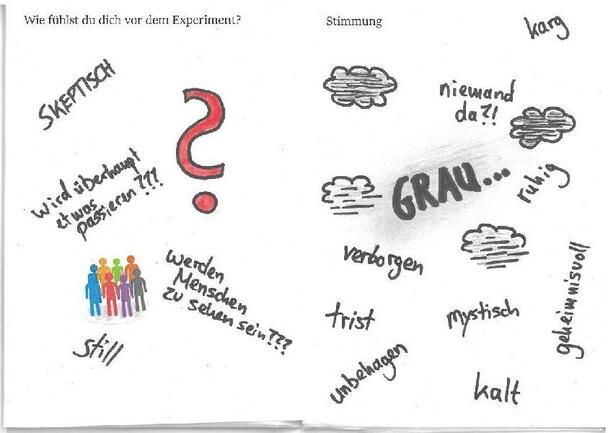 Wie fühlst du dich vor dem Experiment?
SKEPTISCH
?
Wird überhaupt
etwas
passieren???
Werden
Menschen
zu sehen sein???
still
Stimmung
karg
niemand
da?!
GRAU...
ruhig
verborgen
trist
mystisch
geheimnisvoll
unbehagen
kalt